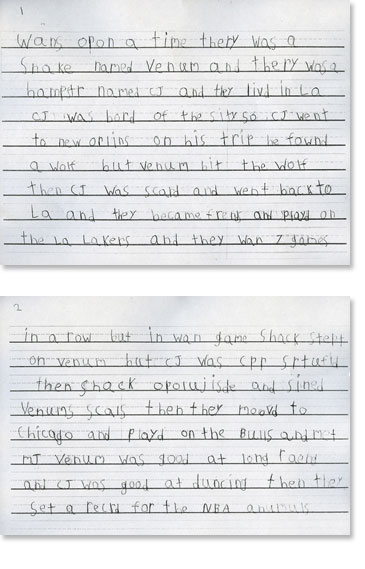 1
Wans opon a time thery was a
Snake named Venum and thery was a
hampstr named CJ and they livd in La
CJ was bord of the sity so CJ went
to new orlins on his trip he found
a wolf but venum bit the wolf
then CJ was scard and went back to
La and they became frends and playd on
the La Lakers and they wan 7 games
2
in a row but in wan game Shack stept
on venum but CJ was
then Shack and sined
Venums scals then they moovd to
Chicago and Playd on the Bulls and met
mJ Venum was good at long
and CJ was good at duncing then they
set a recrd for the NBA